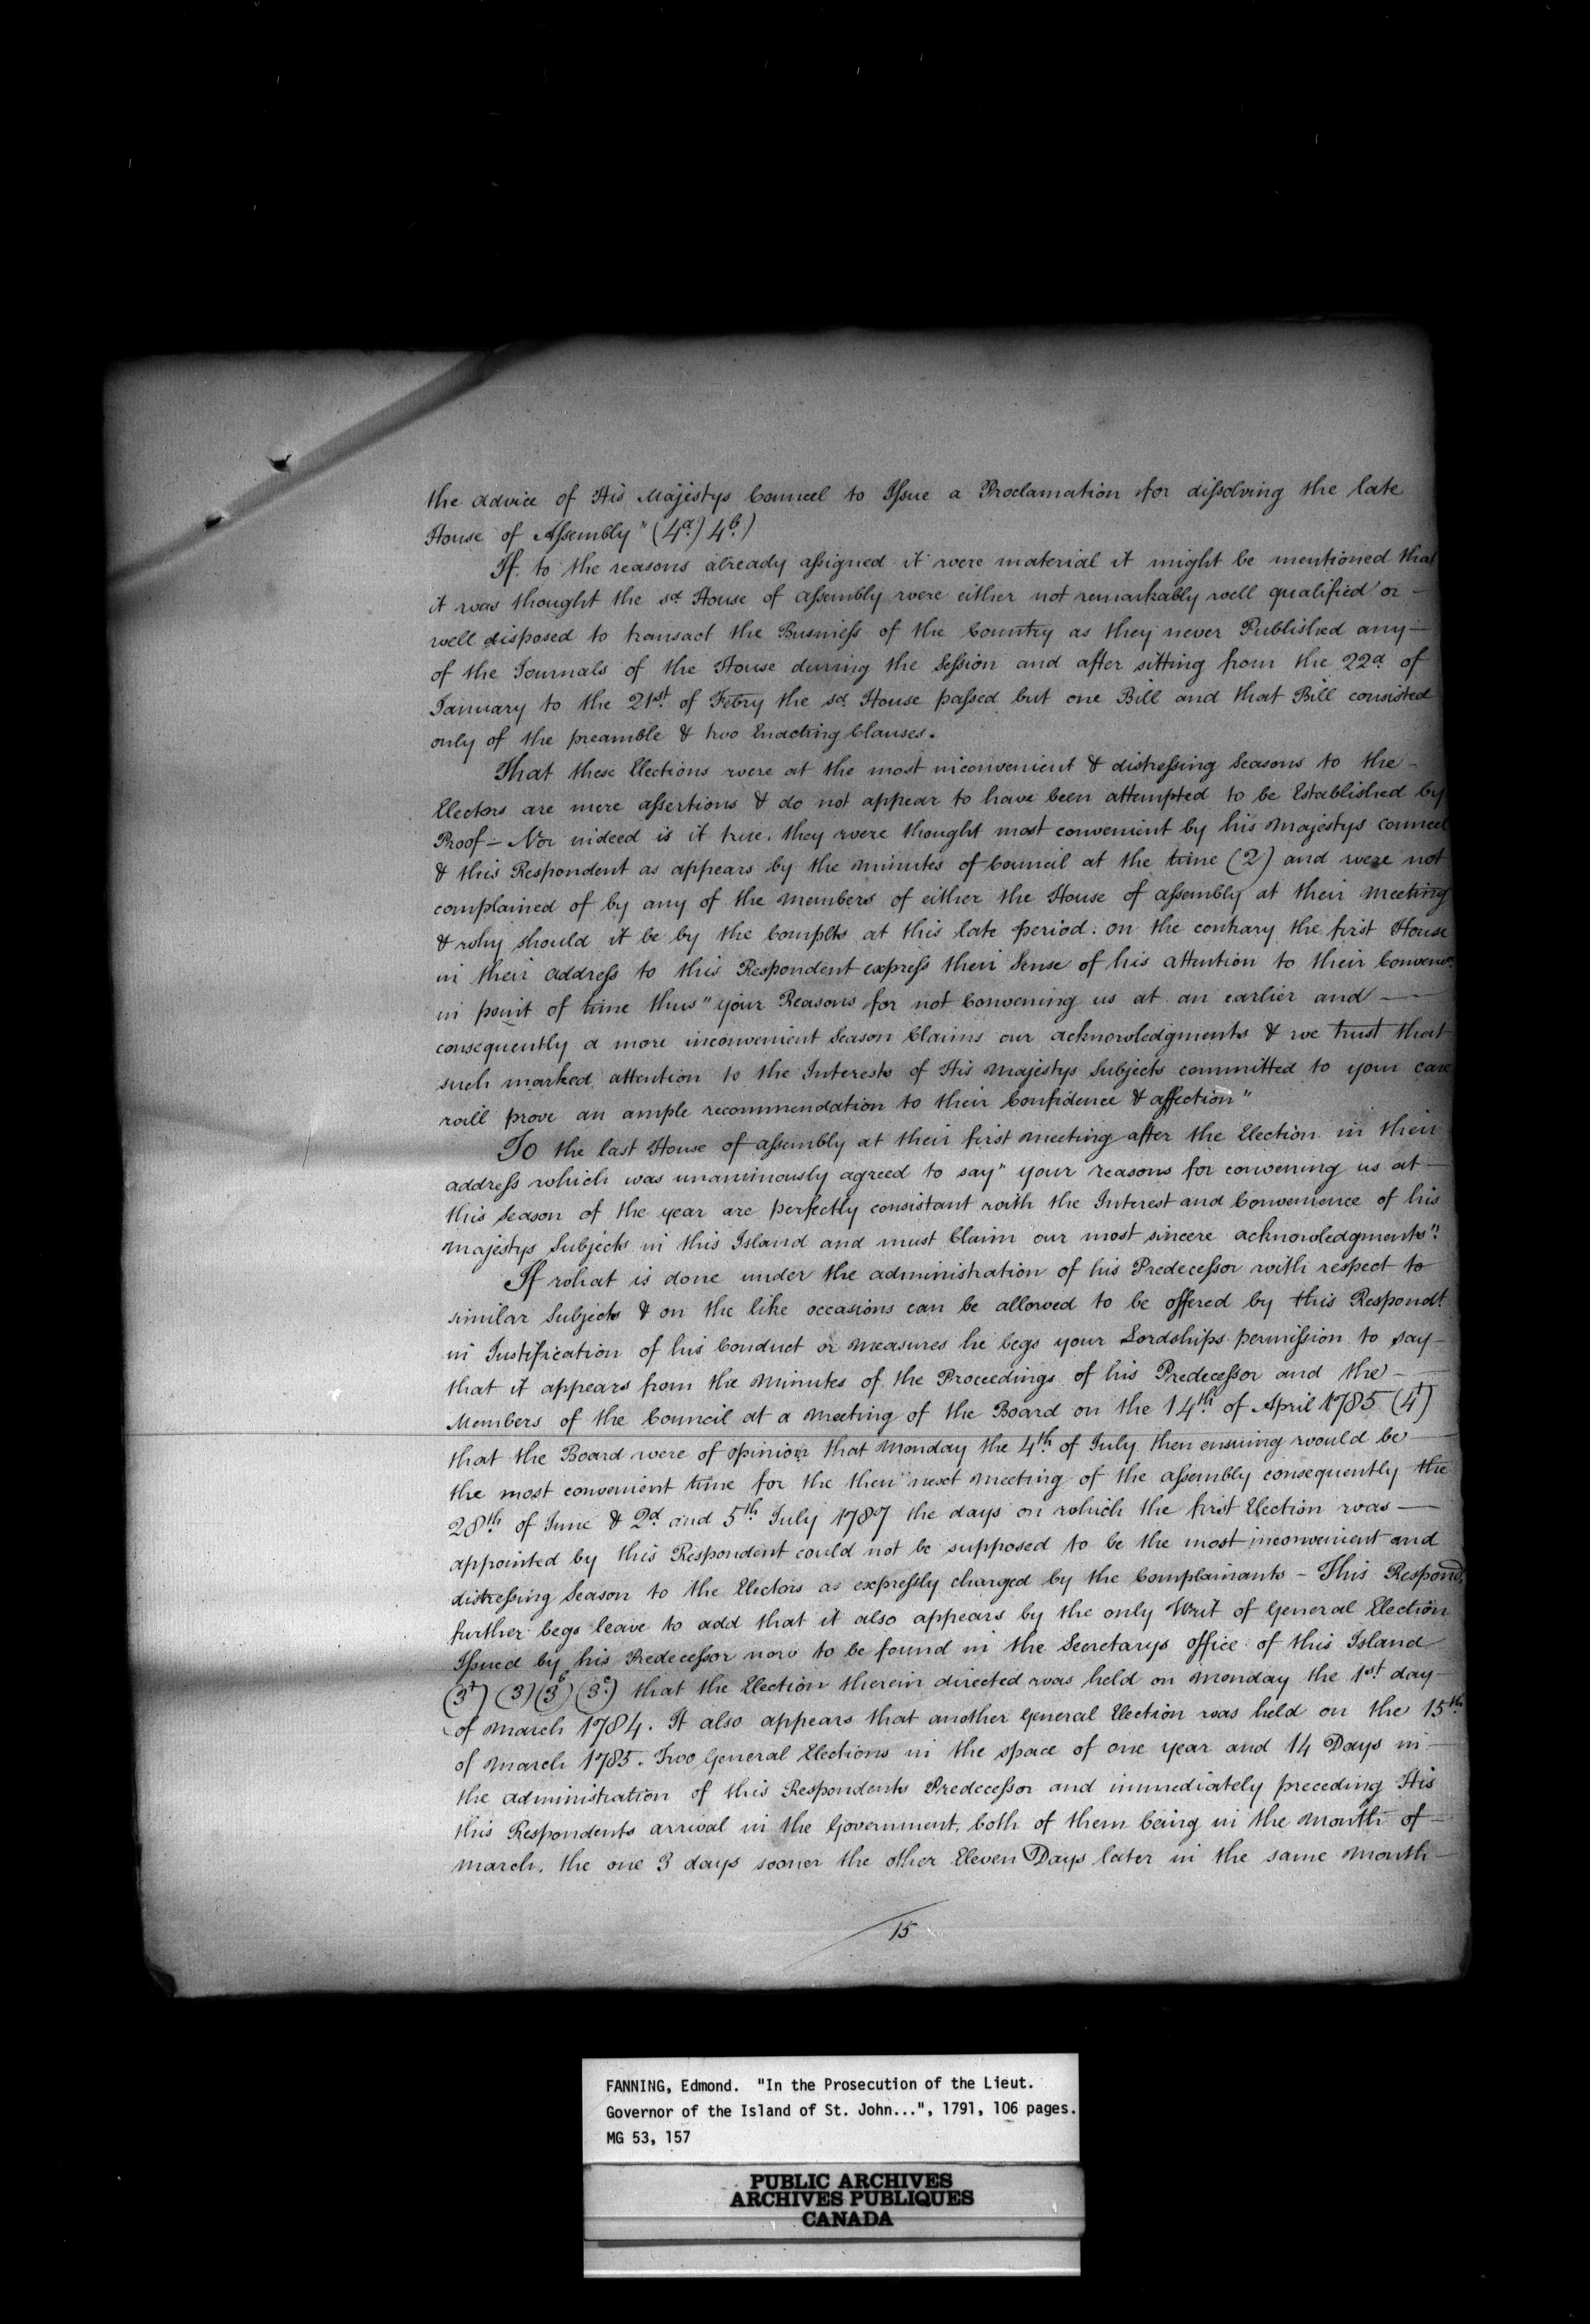 the advice of His Majestys Councel to Issue a Proclamation for dissolving the late
House of Assembly" (4a.) 4b.)
If to the reasons already assigned it were material it might be mentioned that
it was thought the sd House of assembly were either not remarkably well qualified or —
well disposed to transact the Business of the Country as they never Published any —
of the Journals of the House during the Session and after sitting from the 22d of
January to the 21st. of Febry the sd. House passed but one Bill and that Bill consisted
only of the preamble & two Enacting Clauses.
That these Elections were at the most inconvenient & distressing Seasons to the —
Electors are mere assertions & do not appear to have been attempted to be Established by
Proof — Nor indeed is it true. they were thought most convenient by his Majestys councel
& this Respondent as appears by the Minutes of Council at the time (2) and were not
complained of by any of the Members of either the House of assembly at their Meeting
& why should it be by the Complts at this late period. on the contrary the first House
in their address to this Respondent express their Sense of his attention to their
in point of time thus "your Reasons for not Convening us at an earlier and —
consequently a more inconvenient Season Claims our acknowledgments & we trust that
such marked attention to the Interests of His Majestys Subjects committed to your care
will prove an ample recommendation to their Confidence & affection"
To the last House of assembly at their first Meeting after the Election in their
address which was unanimously agreed to say "your reasons for convening us at —
this Season of the year are perfectly consistant with the Interest and Convenience of his
Majestys Subjects in this Island and must Claim our most sincere acknowledgments".
If what is done under the administration of his Predecessor with respect to
similar Subjects & on the like occasions can be allowed to be offered by this Respondt.
in Justification of his Conduct or Measures he begs your Lordships permission to say —
that it appears from the Minutes of the Proceedings of his Predecessor and the —
Members of the Council at a Meeting of the Board on the 14th. of April 1785 (4†)
that the Board were of opinion that Monday the 4th. of July then ensuing would be —
the most convenient time for the then next Meeting of the assembly consequently the
28th. of June & 2d. and 5th. July 1787 the days on which the first Election was —
appointed by this Respondent could not be supposed to be the most inconvenient and
distressing Season to the Electors as expressly charged by the Complainants — This Respond.
further begs leave to add that it also appears by the only Writ of General Election
Issued by his Predecessor now to be found in the Secretarys office of this Island
(3†) (3) (3b) (3c.) that the Election therein directed was held on Monday the 1st. day —
of March 1784. It also appears that another General Election was held on the 15th.
of March 1785. Two General Elections in the space of one year and 14 Days in —
the administration of this Respondents Predecessor and immediately preceding His
this Respondents arrival in the Government, both of them being in the Month of —
March. the one 3 days sooner the other Eleven Days later in the same Month —
15
FANNING, Edmond. "In the Prosecution of the Lieut.
Governor of the Island of St. John...", 1791, 106 pages.
MG 53, 157
PUBLIC ARCHIVES
ARCHIVES PUBLIQUES
CANADA